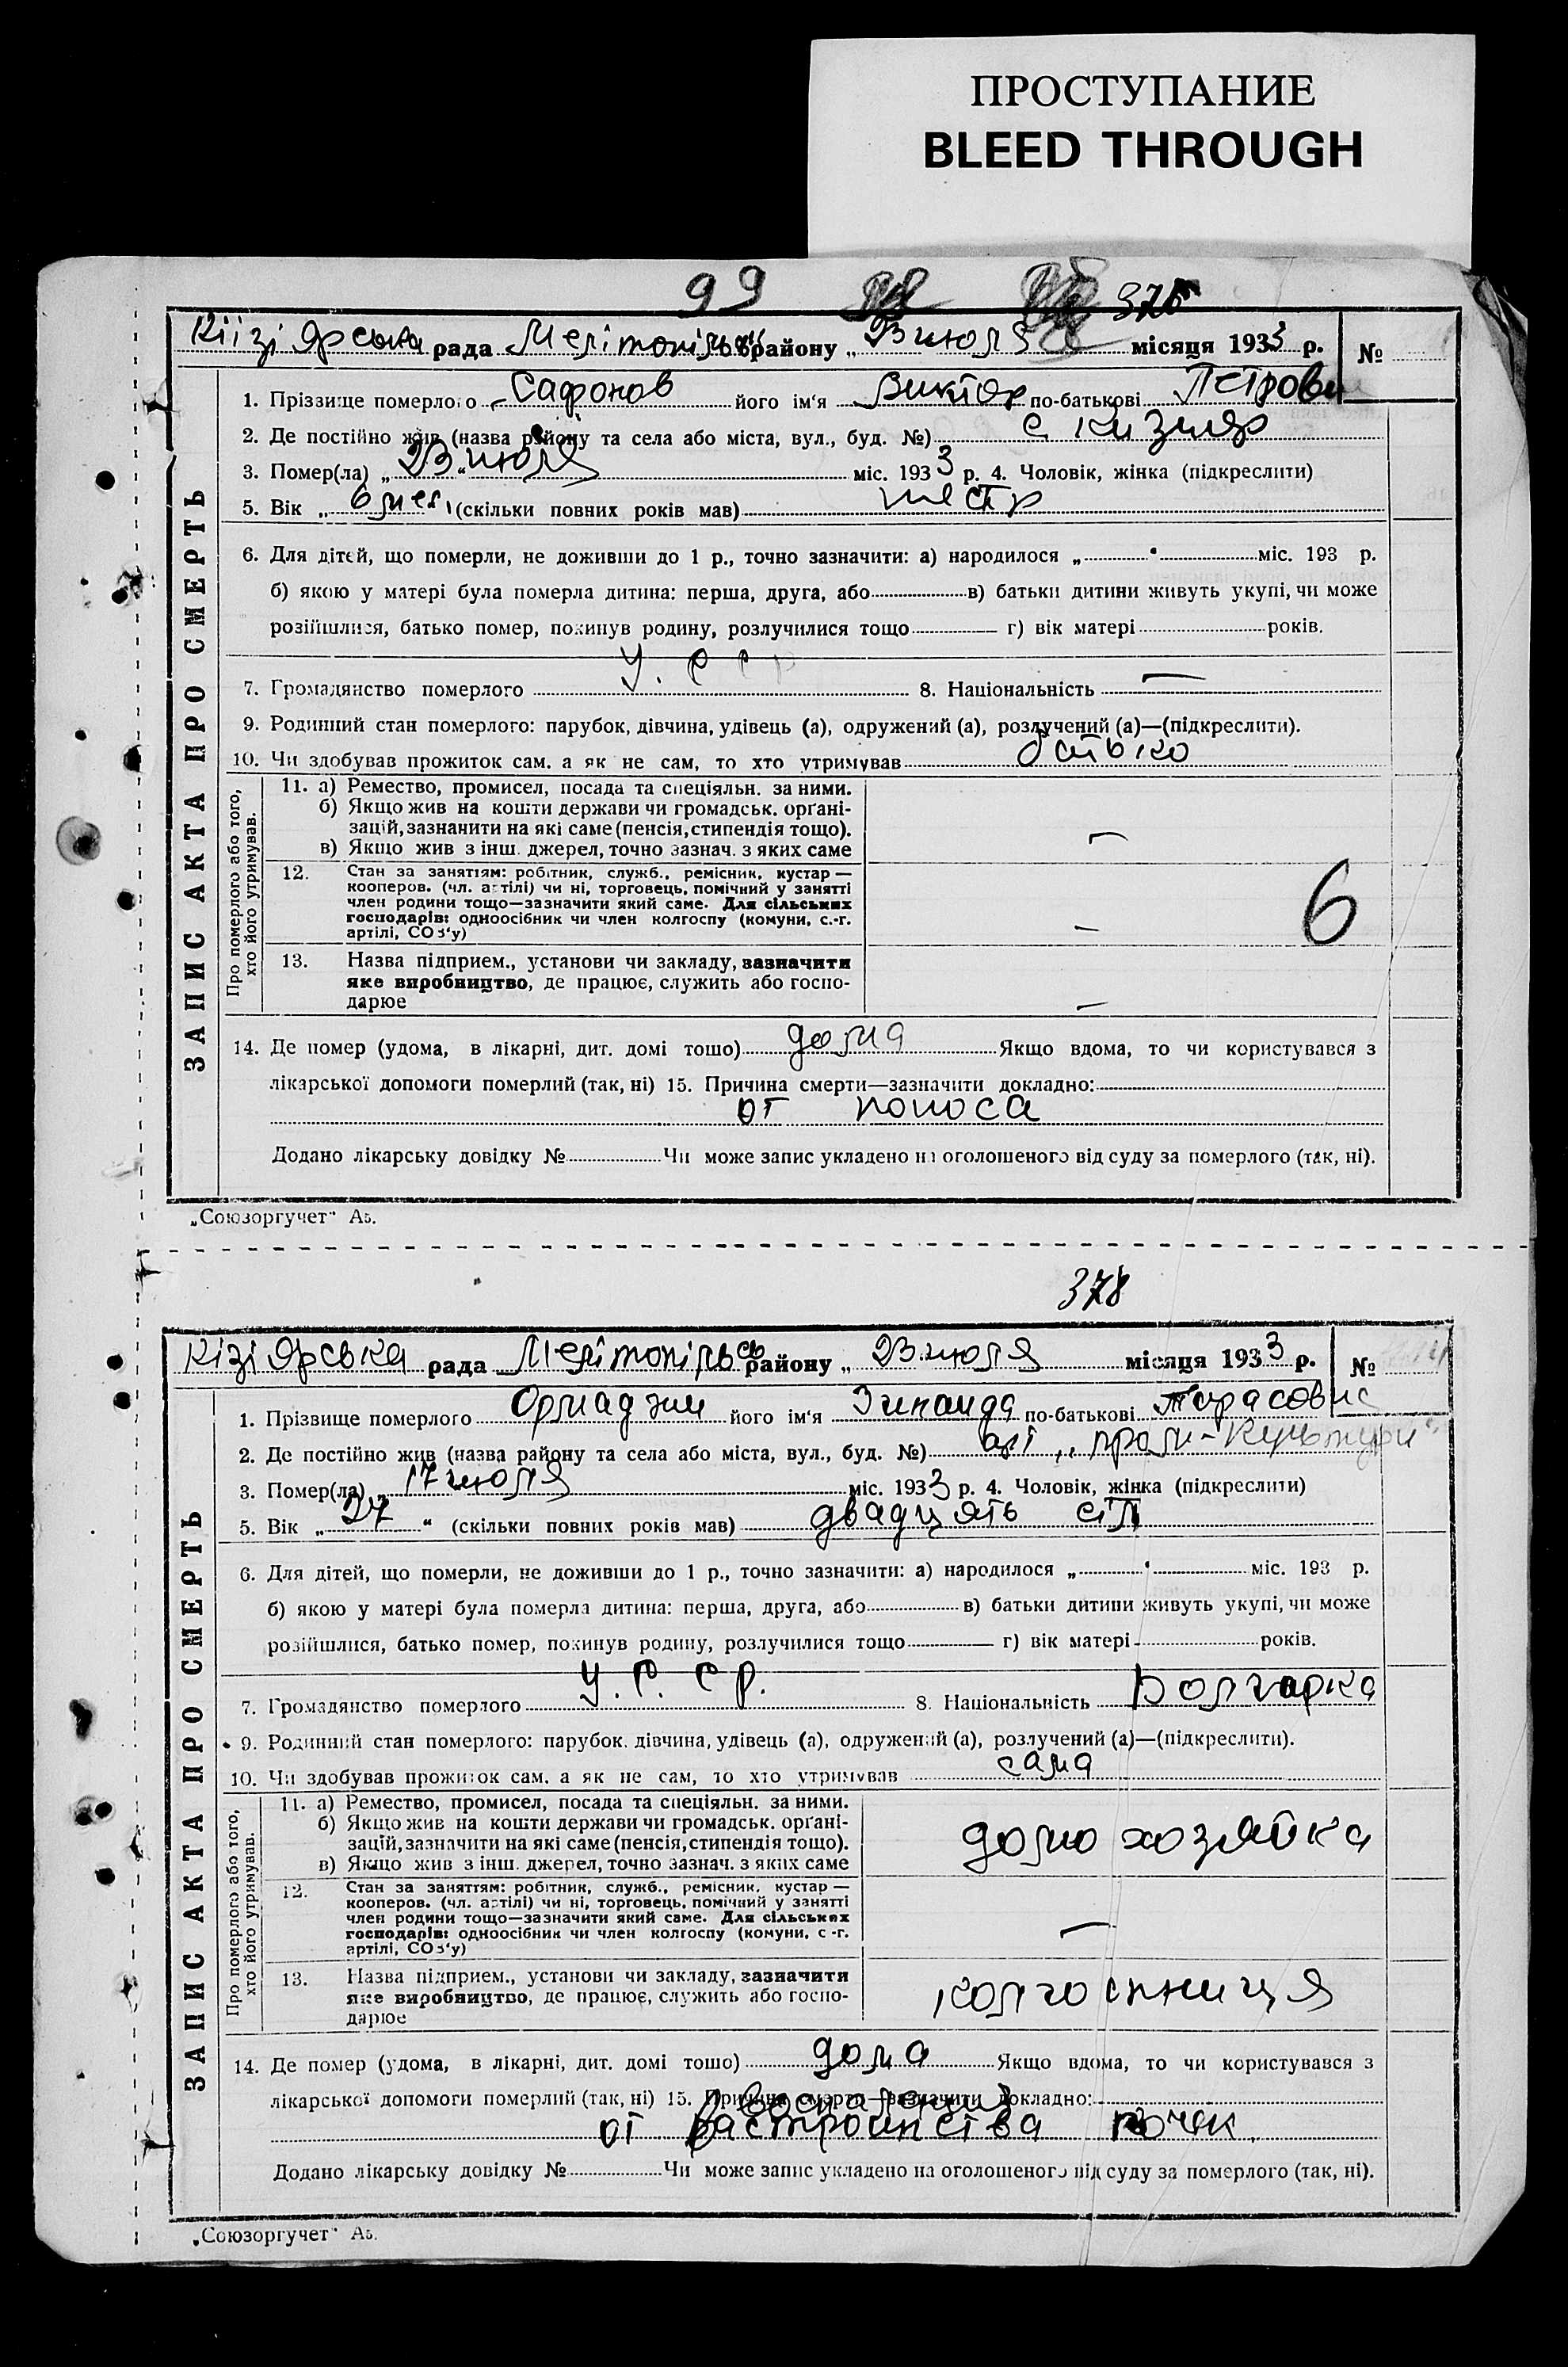 ПРОСТУПАНИЕ
BLEED THROUGH
99 376
Кіізіярська рада Мелітопільськ району „ 23 июля місяця 1933 р. №
ЗАПИС АКТА ПРО СМЕРТЬ
1. Прізвище померлого Сафонов його ім'я Виктор по-батькові Петрович
2. Де постійно жив (назва району та села або міста, вул., буд. №) с Кизияр
3. Помер(ла) „ 23 “ июля міс. 1933 р. 4. Чоловік, жінка (підкреслити)
5. Вік „ 6 мес. (скільки повних років мав)
6. Для дітей, що померли, не доживши до 1 р., точно зазначити: а) народилося „ “ міс. 193 р.
б) якою у матері була померла дитина: перша, друга, або в) батьки дитини живуть укупі, чи може
розійшлися, батько помер, покинув родину, розлучилися тощо г) вік матері років.
7. Громадянство померлого У. С С Р 8. Національність —
9. Родинний стан померлого: парубок, дівчина, удівець (а), одружений (а), розлучений (а)—(підкреслити).
10. Чи здобував прожиток сам, а як не сам, то хто утримував батько
Про померлого або того, хто його утримував.
11. а) Ремество, промисел, посада та спеціяльн. за ними.
б) Якщо жив на кошти держави чи громадськ. органі-
зацій, зазначити на які саме (пенсія, стипендія тощо).
в) Якщо жив з інш. джерел, точно зазнач. з яких саме —
12. Стан за заняттям: робітник, служб., ремісник, кустар —
кооперов. (чл. артілі) чи ні, торговець, помічний у занятті
член родини тощо—зазначити який саме. Для сільських
господарів: одноосібник чи член колгоспу (комуни, с.-г.
артілі, СОЗ'у) — 6
13. Назва підприєм., установи чи закладу, зазначити
яке виробництво, де працює, служить або госпо-
дарює —
14. Де помер (удома, в лікарні, дит. домі тощо) дома Якщо вдома, то чи користувався з
лікарської допомоги померлий (так, ні) 15. Причина смерти—зазначити докладно:
от поноса
Додано лікарську довідку № Чи може запис укладено на оголошеного від суду за померлого (так, ні).
„Союзоргучет“ А5.
378
Кізіярська рада Мелітопільськ району „ 23 июля місяця 1933 р. №
ЗАПИС АКТА ПРО СМЕРТЬ
1. Прізвище померлого Ормаджи його ім'я Зинаида по-батькові Тарасовна
2. Де постійно жив (назва району та села або міста, вул., буд. №) арт „
3. Помер(ла) „ 17 июля міс. 1933 р. 4. Чоловік, жінка (підкреслити)
5. Вік „ 27 “ (скільки повних років мав) двадцять сім
6. Для дітей, що померли, не доживши до 1 р., точно зазначити: а) народилося „ “ міс. 193 р.
б) якою у матері була померла дитина: перша, друга, або в) батьки дитини живуть укупі, чи може
розійшлися, батько помер, покинув родину, розлучилися тощо г) вік матері років.
7. Громадянство померлого У. С. С Р. 8. Національність Болгарка
9. Родинний стан померлого: парубок, дівчина, удівець (а), одружений (а), розлучений (а)—(підкреслити).
10. Чи здобував прожиток сам, а як не сам, то хто утримував сама
Про померлого або того, хто його утримував.
11. а) Ремество, промисел, посада та спеціяльн. за ними.
б) Якщо жив на кошти держави чи громадськ. органі-
зацій, зазначити на які саме (пенсія, стипендія тощо).
в) Якщо жив з інш. джерел, точно зазнач. з яких саме домохозяйка
12. Стан за заняттям: робітник, служб., ремісник, кустар —
кооперов. (чл. артілі) чи ні, торговець, помічний у занятті
член родини тощо—зазначити який саме. Для сільських
господарів: одноосібник чи член колгоспу (комуни, с.-г.
артілі, СОЗ'у) —
13. Назва підприєм., установи чи закладу, зазначити
яке виробництво, де працює, служить або госпо-
дарює колгоспниця
14. Де помер (удома, в лікарні, дит. домі тощо) дома Якщо вдома, то чи користувався з
лікарської допомоги померлий (так, ні) 15. Причина смерти—зазначити докладно:
воспаления
от растроинства почек.
Додано лікарську довідку № Чи може запис укладено на оголошеного від суду за померлого (так, ні).
„Союзоргучет“ А5.